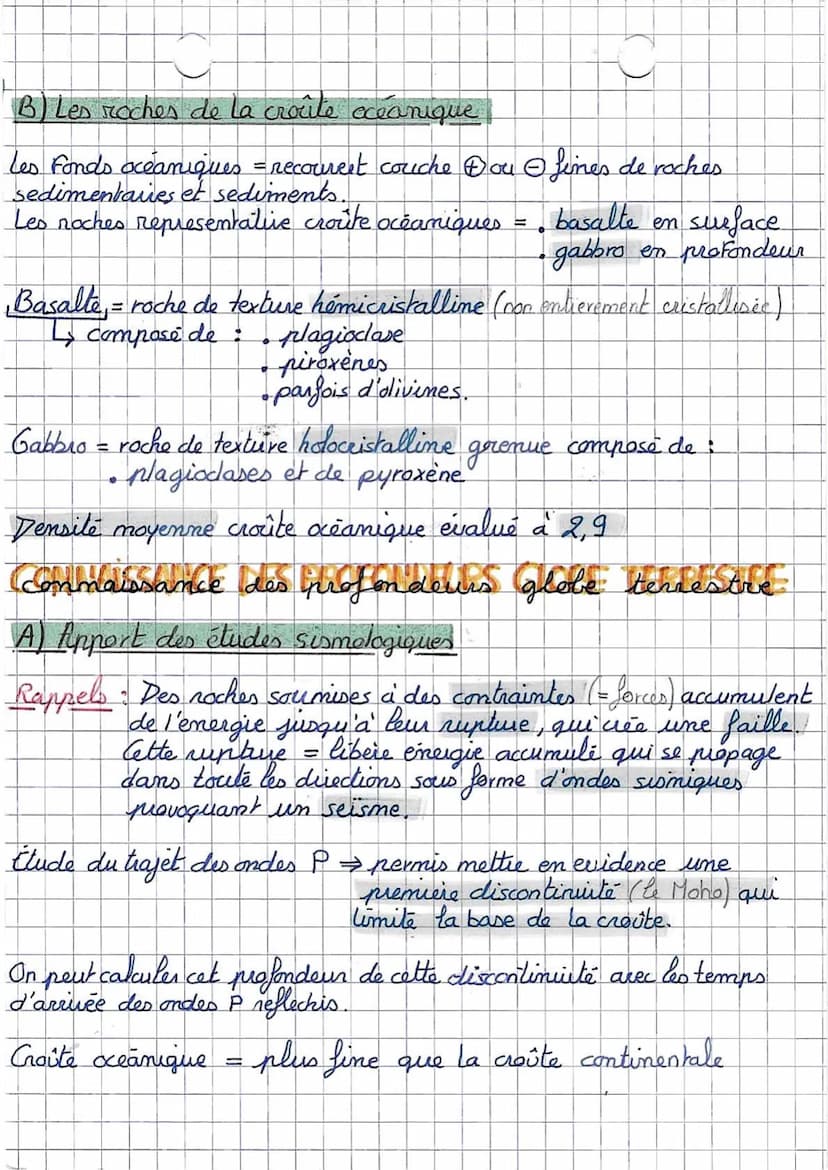 B) Les roches de la croûte océanique
Les Fonds océaniques = recouvert couche ⊕ ou ⊖ fines de roches
sedimentaires et sediments.
Les roches representative croûte océaniques = . basalte en surface
. gabbro en profondeur
Basalte = roche de texture hémicristalline (non entierement cristallisée)
↳ composé de : . plagioclase
. piroxènes
. parfois d'olivines.
Gabbro = roche de texture holocristalline grenue composé de :
. plagioclases et de pyroxène
Densité moyenne croûte océanique évalué à 2,9
CONNAISSANCE DES PROFONDEURS GLOBE TERRESTRE
connaissance des profondeurs globe terrestre
A) Apport des études sismologiques
Rappels : Des roches soumises à des contraintes (= forces) accumulent
de l'énergie jusqu'à leur rupture, qui crée une faille.
Cette rupture = libère énergie accumulé qui se propage
dans toute les directions sous forme d'ondes sismiques
provoquant un seisme.
Étude du trajet des ondes P ⇒ permis mettre en evidence une
premiere discontinuité (le Moho) qui
limite la base de la croûte.
On peut calculer cet profondeur de cette discontinuité avec les temps
d'arrivée des ondes P réflechis.
Croûte océanique = plus fine que la croûte continentale